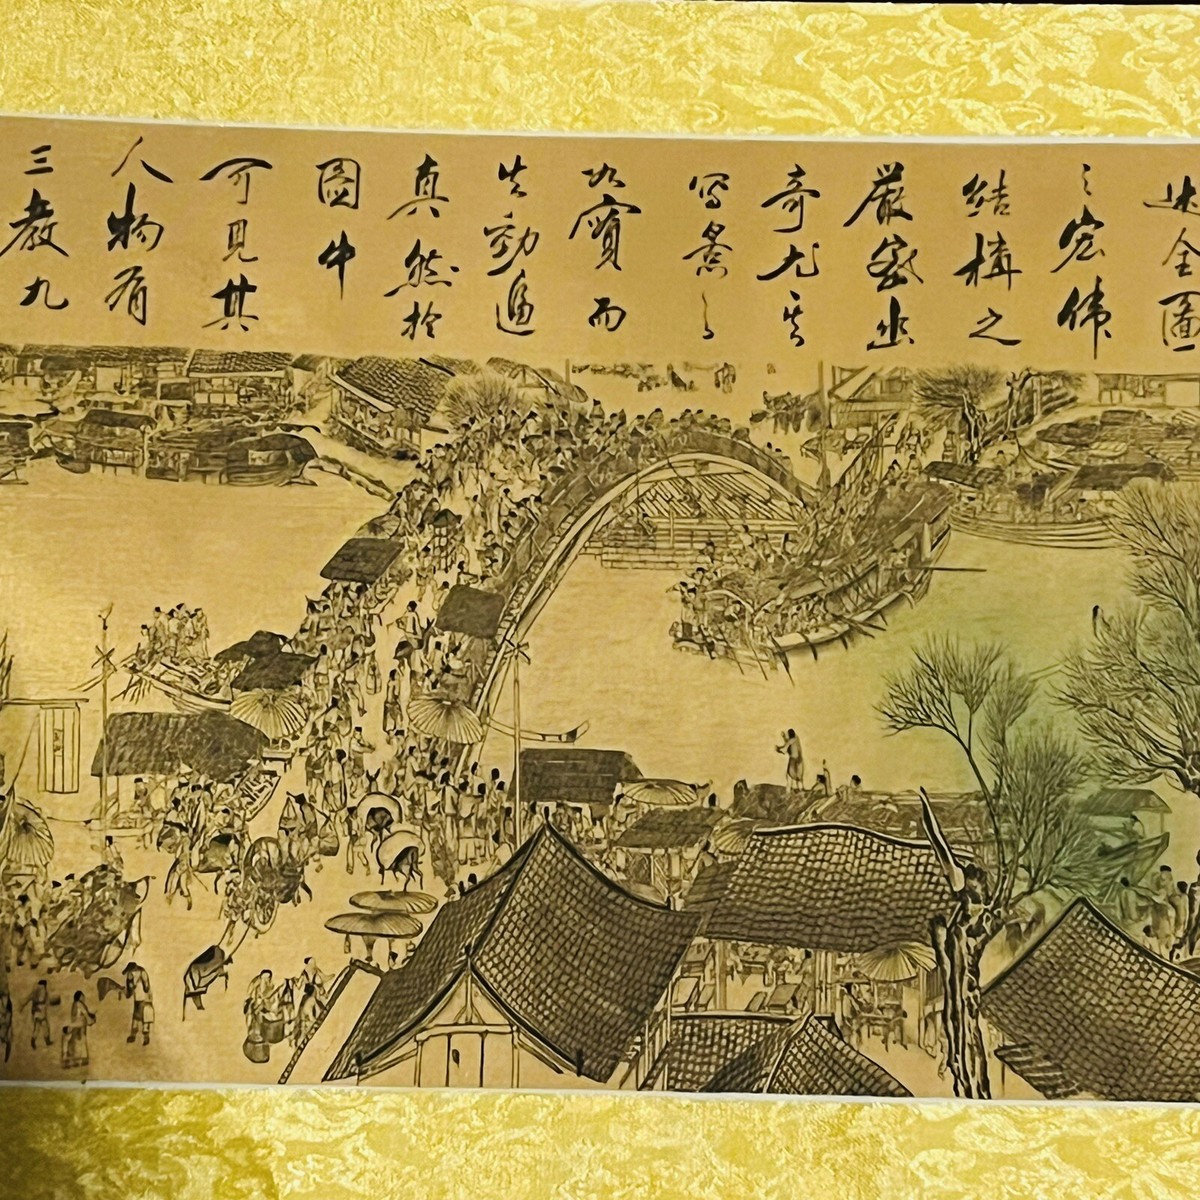 述全圖
之宏伟
结構之
嚴密出
奇尤其
写景之
實而
生動逼
真然於
圖中
可見其
人物有
三教九